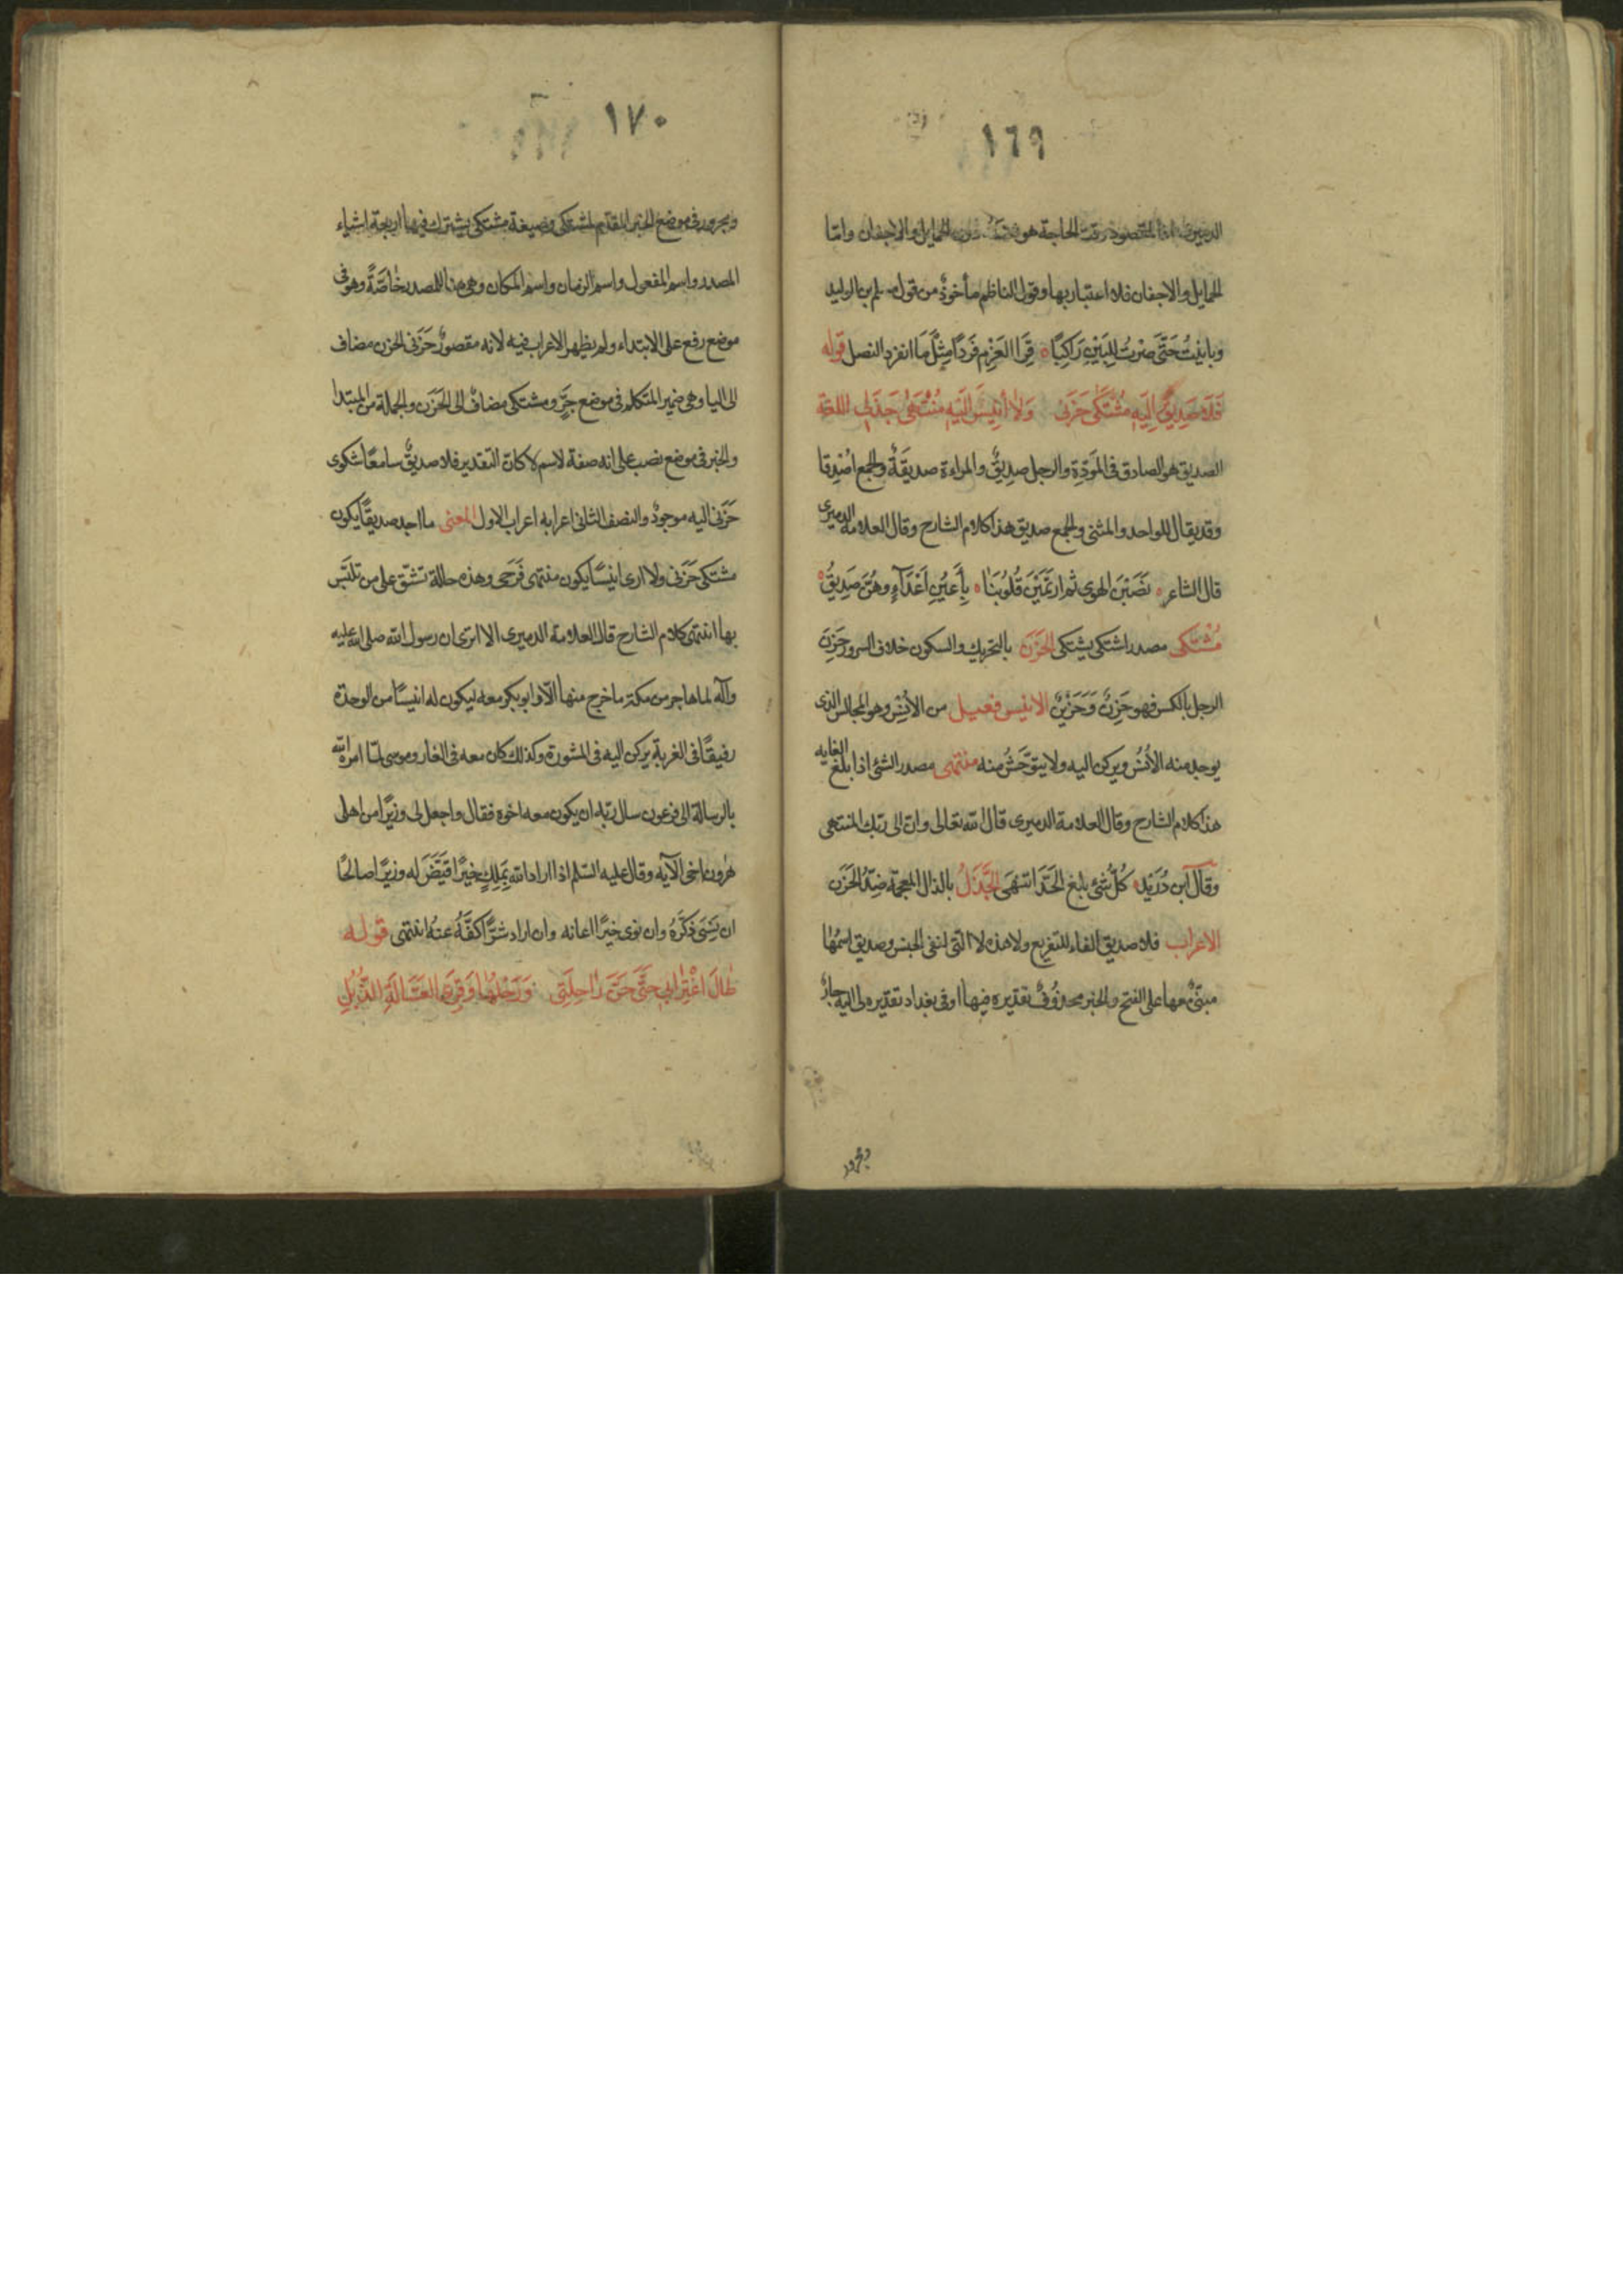 ١٦٩
المقصود وقت الحاجة هو دون الحمايل والاجفان وامّا
الحمايل والاجفان فلا اعتبار بها وقول الناظم مأخوذ من قول مسلم بن الوليد
وبانيتُ حَتَّى صِرْتُ لِلبَيْنِ رَاكِبًا ۝ قِرَا العَزْمِ فَردًا مِثْلَ مَا انفرد النصل قوله
فَلَا صَدِيقٌ اِلَيْهِ مُشْتَكَى حَزَنِي وَلَا أَنِيسَ اِلَيْهِ مُنْتَهَى جَذَلِي اللغة
الصديق هو الصادق فى المَوَدَّةِ والرجل صديقٌ والمراءة صديقَةٌ والجمع اصْدِقا
وقد يقال للواحد والمثنى والجمع صديق هذا كلام الشارح وقال العلامة الدميرى
قال الشاعر ۝ نَصَبْنَ الهوى ثم ارتَمَيْنَ قُلُوبَنَا ۝ بِأَعيُنِ اَعْدَآءٍ وهُنَّ صَدِيقُ ۝
مُشْتَكى مصدر اشتكى يشتكى الحَزَن بالتحريك والسكون خلاف السرور حَزِنَ
الرجل بالكسر فهو حَزِنٌ وَحَزِيْنٌ الانيس فعيل من الأُنْسِ وهو المجالس الذى
يوجد منه الأُنْسُ ويركن اليه ولا يتوحّشُ منه منتهى مصدر الشئ اذا بلغ الغايه
هذا كلام الشارح وقال العلامة الدميرى قال الله تعالى وان الى ربك المنتهى
وقال ابن دُرَيْد كُلُّ شئٍ بلغ الحَدَّ انتهَى الجَذَلُ بالذال المعجمة ضِدُّ الحَزَن
الاعراب فلا صديق الفاء للتفريع ولا هذه لا التى لنفى الجنس وصديق اسمُهَا
مبنىٌّ معها على الفتح والخبر محذوفٌ تقديره فيها اوفى بغداد تقديره لى اليه جارٌ
ومجرور
١٧٠
ومجرور فى موضع الخبر المقدّم لمشتكى وصيغة مشتكى يشترك فيها اربعة اشياء
المصدر واسم المفعول واسم الزمان واسم المكان وهى هنا للمصدر خاصَّةً وهو فى
موضع رفع على الابتداء ولم يظهر الاعراب فيه لانه مقصورٌ حَزَنى الحزن مضاف
الى اليا وهى ضمير المتكلم فى موضع جَرٍّ ومشتكى مضافٌ الى الحَزَن والجملة من المبتدا
والخبر فى موضع نصب على انه صفة لاسم لا كان التقدير فلا صديقٌ سامعًا شكوى
حَزَنى اليه موجودٌ والنصف الثانى اعرابه اعراب الاول المعنى ما اجد صديقًا يكون
مشتكى حَزَنى ولا ارى انيسًا يكون منتهى فَرَحى وهذه حالة تشقّ على من تلبّس
بها انتهى كلام الشارح قال العلامة الدميرى الا ترى ان رسول الله صلى الله عليه
وآله لما هاجر من مكة ما خرج منها الّا وابو بكر معه ليكون له انيسًا من الوحدة
رفيقًا فى الغربة يركن اليه فى المشورة وكذلك كان معه فى الغار وموسى لمّا امره الله
بالرسالة الى فرعون سال ربّه ان يكون معه اخوه فقال واجعل لى وزيرًا من اهلى
هٰرون اخى الآيه وقال عليه السّلم اذا اراد الله بِمَلِكٍ خيرًا قيَّضَ له وزيرًا صالحًا
ان نَسِىَ ذكَّرَهُ وان نوى خيرًا اعانه وان اراد شرًّا كفَّهُ عنهُ انتهى قوله
طٰالَ اغْتِرَابِى حَتَّى حَنَّ رَاحِلَتِى وَرَحْلُهَا وَقَرَى العَسَّالَةِ الذُّبُلِ